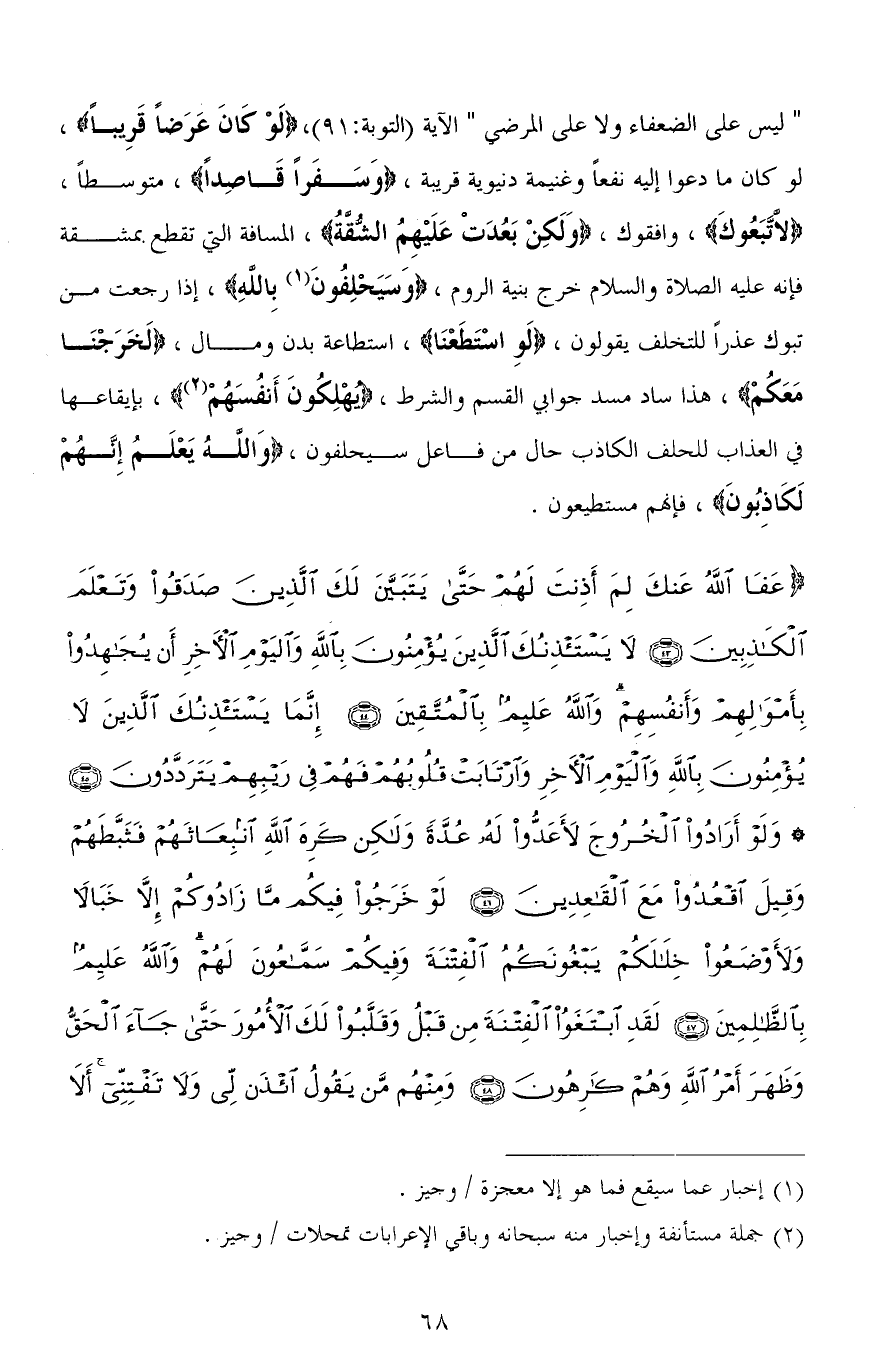 " ليس على الضعفاء ولا على المرضي " الآية (التوبة:٩١)، ﴿لَوْ كَانَ عَرَضاً قَرِيباً﴾ ،
لو كان ما دعوا إليه نفعاً وغنيمة دنيوية قريبة ، ﴿وَسَفَراً قَاصِداً﴾ ، متوسطاً ،
﴿لاَّتَّبَعُوكَ﴾ ، وافقوك ، ﴿وَلَكِنْ بَعُدَتْ عَلَيْهِمُ الشُّقَّةُ﴾ ، المسافة التي تقطع بمشقة
فإنه عليه الصلاة والسلام خرج بنية الروم ، ﴿وَسَيَحْلِفُونَ(١) بِاللَّهِ﴾ ، إذا رجعت من
تبوك عذراً للتخلف يقولون ، ﴿لَوِ اسْتَطَعْنَا﴾ ، استطاعة بدن ومال ، ﴿لَخَرَجْنَا
مَعَكُمْ﴾ ، هذا ساد مسد جوابي القسم والشرط ، ﴿يُهْلِكُونَ أَنفُسَهُمْ(٢)﴾ ، بإيقاعها
في العذاب للحلف الكاذب حال من فاعل سيحلفون ، ﴿وَاللَّهُ يَعْلَمُ إِنَّهُمْ
لَكَاذِبُونَ﴾ ، فإنهم مستطيعون .
﴿عَفَا ٱللَّهُ عَنكَ لِمَ أَذِنتَ لَهُمْ حَتَّىٰ يَتَبَيَّنَ لَكَ ٱلَّذِينَ صَدَقُواْ وَتَعْلَمَ
ٱلْكَـٰذِبِينَ ۝٤٣ لَا يَسْتَـْٔذِنُكَ ٱلَّذِينَ يُؤْمِنُونَ بِٱللَّهِ وَٱلْيَوْمِ ٱلْأَخِرِ أَن يُجَـٰهِدُواْ
بِأَمْوَٰلِهِمْ وَأَنفُسِهِمْ ۗ وَٱللَّهُ عَلِيمٌۢ بِٱلْمُتَّقِينَ ۝٤٤ إِنَّمَا يَسْتَـْٔذِنُكَ ٱلَّذِينَ لَا
يُؤْمِنُونَ بِٱللَّهِ وَٱلْيَوْمِ ٱلْأَخِرِ وَٱرْتَابَتْ قُلُوبُهُمْ فَهُمْ فِى رَيْبِهِمْ يَتَرَدَّدُونَ ۝٤٥
* وَلَوْ أَرَادُواْ ٱلْخُرُوجَ لَأَعَدُّواْ لَهُۥ عُدَّةً وَلَـٰكِن كَرِهَ ٱللَّهُ ٱنۢبِعَاثَهُمْ فَثَبَّطَهُمْ
وَقِيلَ ٱقْعُدُواْ مَعَ ٱلْقَـٰعِدِينَ ۝٤٦ لَوْ خَرَجُواْ فِيكُم مَّا زَادُوكُمْ إِلَّا خَبَالًا
وَلَأَوْضَعُواْ خِلَـٰلَكُمْ يَبْغُونَكُمُ ٱلْفِتْنَةَ وَفِيكُمْ سَمَّـٰعُونَ لَهُمْ ۗ وَٱللَّهُ عَلِيمٌۢ
بِٱلظَّـٰلِمِينَ ۝٤٧ لَقَدِ ٱبْتَغَوُاْ ٱلْفِتْنَةَ مِن قَبْلُ وَقَلَّبُواْ لَكَ ٱلْأُمُورَ حَتَّىٰ جَآءَ ٱلْحَقُّ
وَظَهَرَ أَمْرُ ٱللَّهِ وَهُمْ كَـٰرِهُونَ ۝٤٨ وَمِنْهُم مَّن يَقُولُ ٱئْذَن لِّى وَلَا تَفْتِنِّىٓ ۚ أَلَا
(١) إخبار عما سيقع فما هو إلا معجزة / وجيز .
(٢) جملة مستأنفة وإخبار منه سبحانه وباقي الإعرابات تمحلات / وجيز .
٦٨